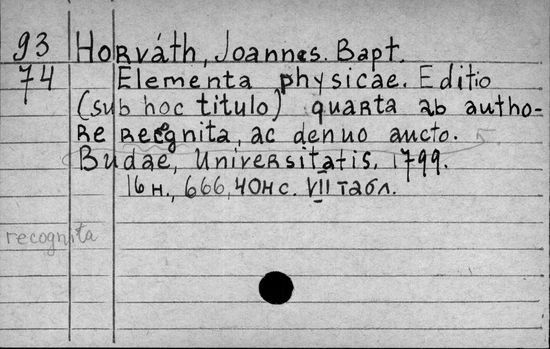 93 Horváth, Joannes. Bapt.
74 Elementa physicae. Editio
(sub hoc titulo) quarta ab autho-
re recognita, ac denuo aucto.
Budae, Universitatis, 1799.
16 н., 666, 40 н с. VII табл.
recognita